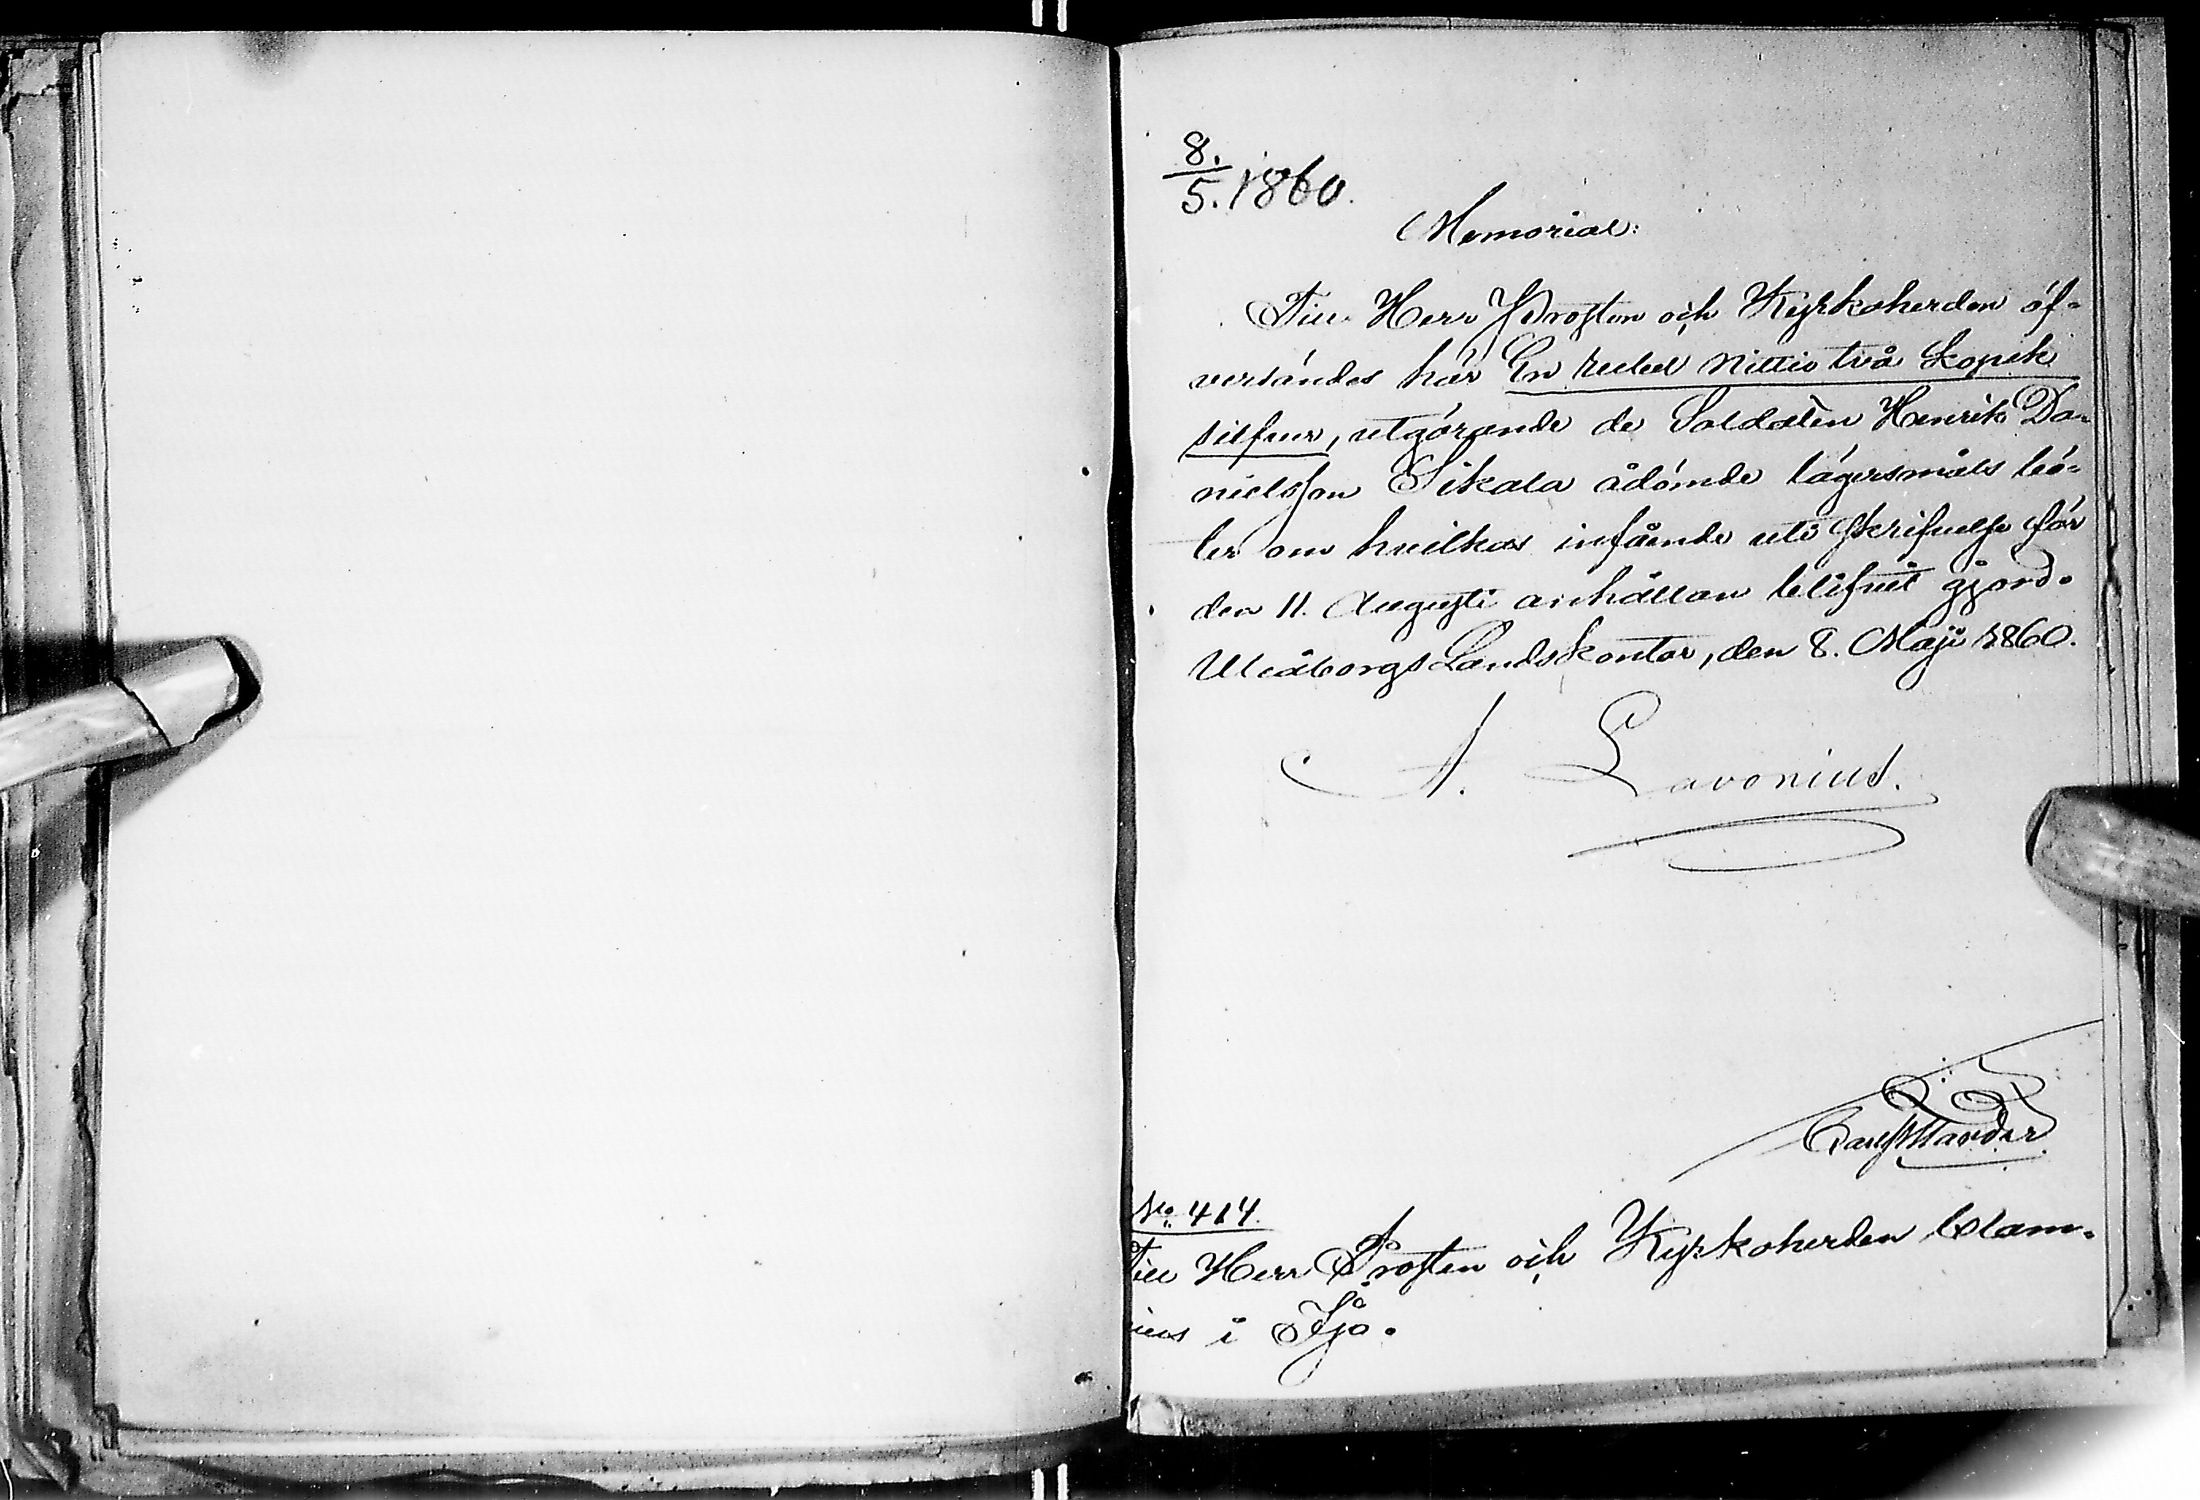 8./5. 1860.
Memorial:
Till Herr Prosten och Kyrkoherden öf-
versändes här En rubel nittio två kopek
silfver, utgörande de Soldaten Henrik Da-
nielsson Sikala ådömde lägersmåls bö-
ter om hvilkas infående uti skrifvelse för
den 11. Augusti anhållan blifvit gjord.
Uleåborgs Landskontor, den 8. Maji 1860.
A. Lavonius.
No. 414.
Till Herr Prosten och Kyrkoherden Clam-
ius i Ijo.